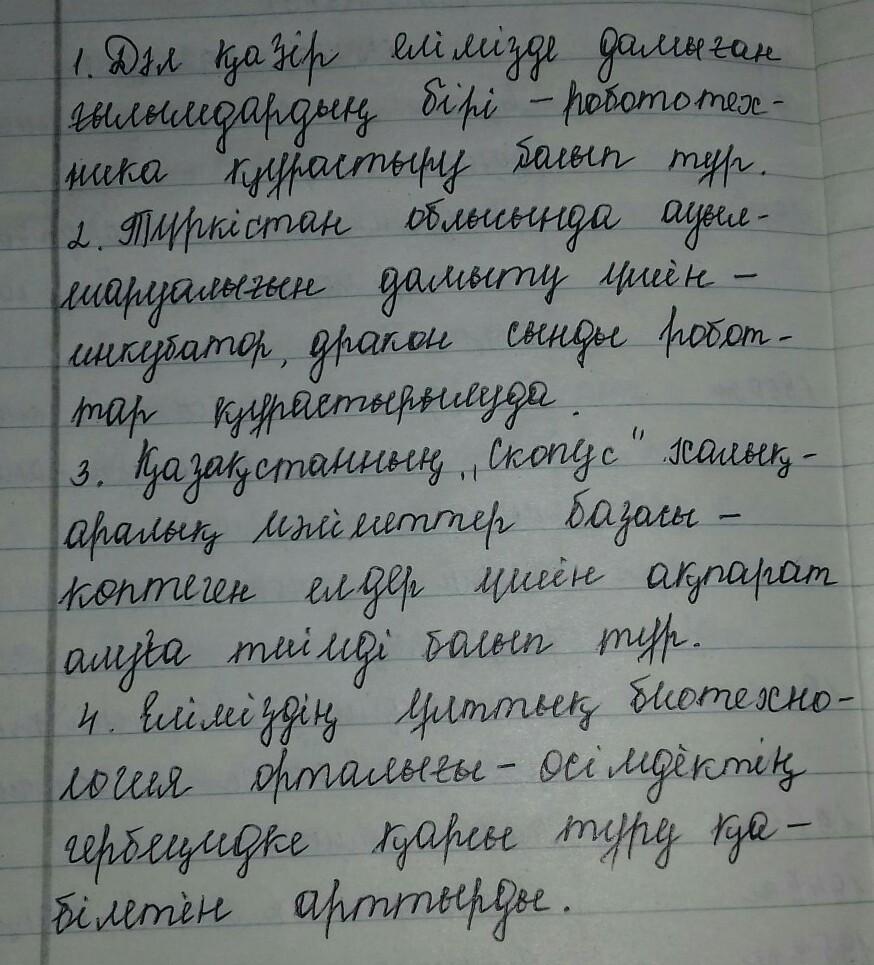 1. Дәл қазір елімізде дамыған
ғылымдардың бірі – робототех-
ника құрастыру болып тұр.
2. Түркістан облысында ауыл-
шаруалығын дамыту үшін –
инкубатор, дракон сынды робот-
тар құрастырылуда.
3. Қазақстанның „Скопус" халық-
аралық мәліметтер базасы –
көптеген елдер үшін ақпарат
алуға тиімді болып тұр.
4. Еліміздің ұлттық биотехно-
логия орталығы – өсімдіктің
гербицидке қарсы тұру қа-
білетін арттырды.